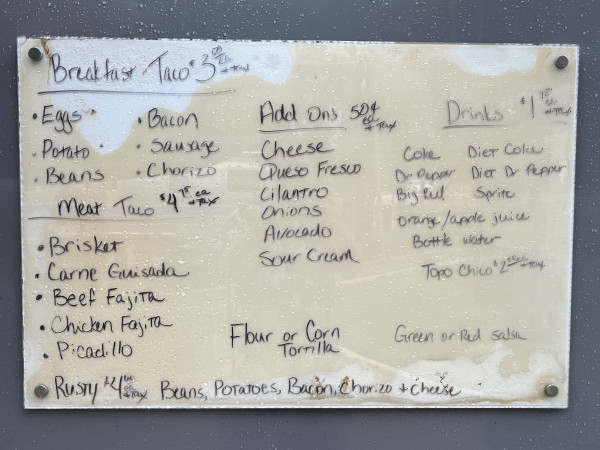 Breakfast Taco $3 00 ea + tax
• Eggs
• Potato
• Beans
• Bacon
• Sausage
• Chorizo
Meat Taco $4 75 ea + tax
• Brisket
• Carne Guisada
• Beef Fajita
• Chicken Fajita
• Picadillo
Add Ons 50¢ ea + Tax
Cheese
Queso Fresco
Cilantro
Onions
Avocado
Sour Cream
Flour or Corn
Tortilla
Drinks $1 75 ea + Tax
Coke Diet Coke
Dr Pepper Diet Dr Pepper
Big Red Sprite
Orange/apple juice
Bottle water
Topo Chico $2 ea + tax
Green or Red salsa
Rusty $4 ea + tax Beans, Potatoes, Bacon, Chorizo + cheese